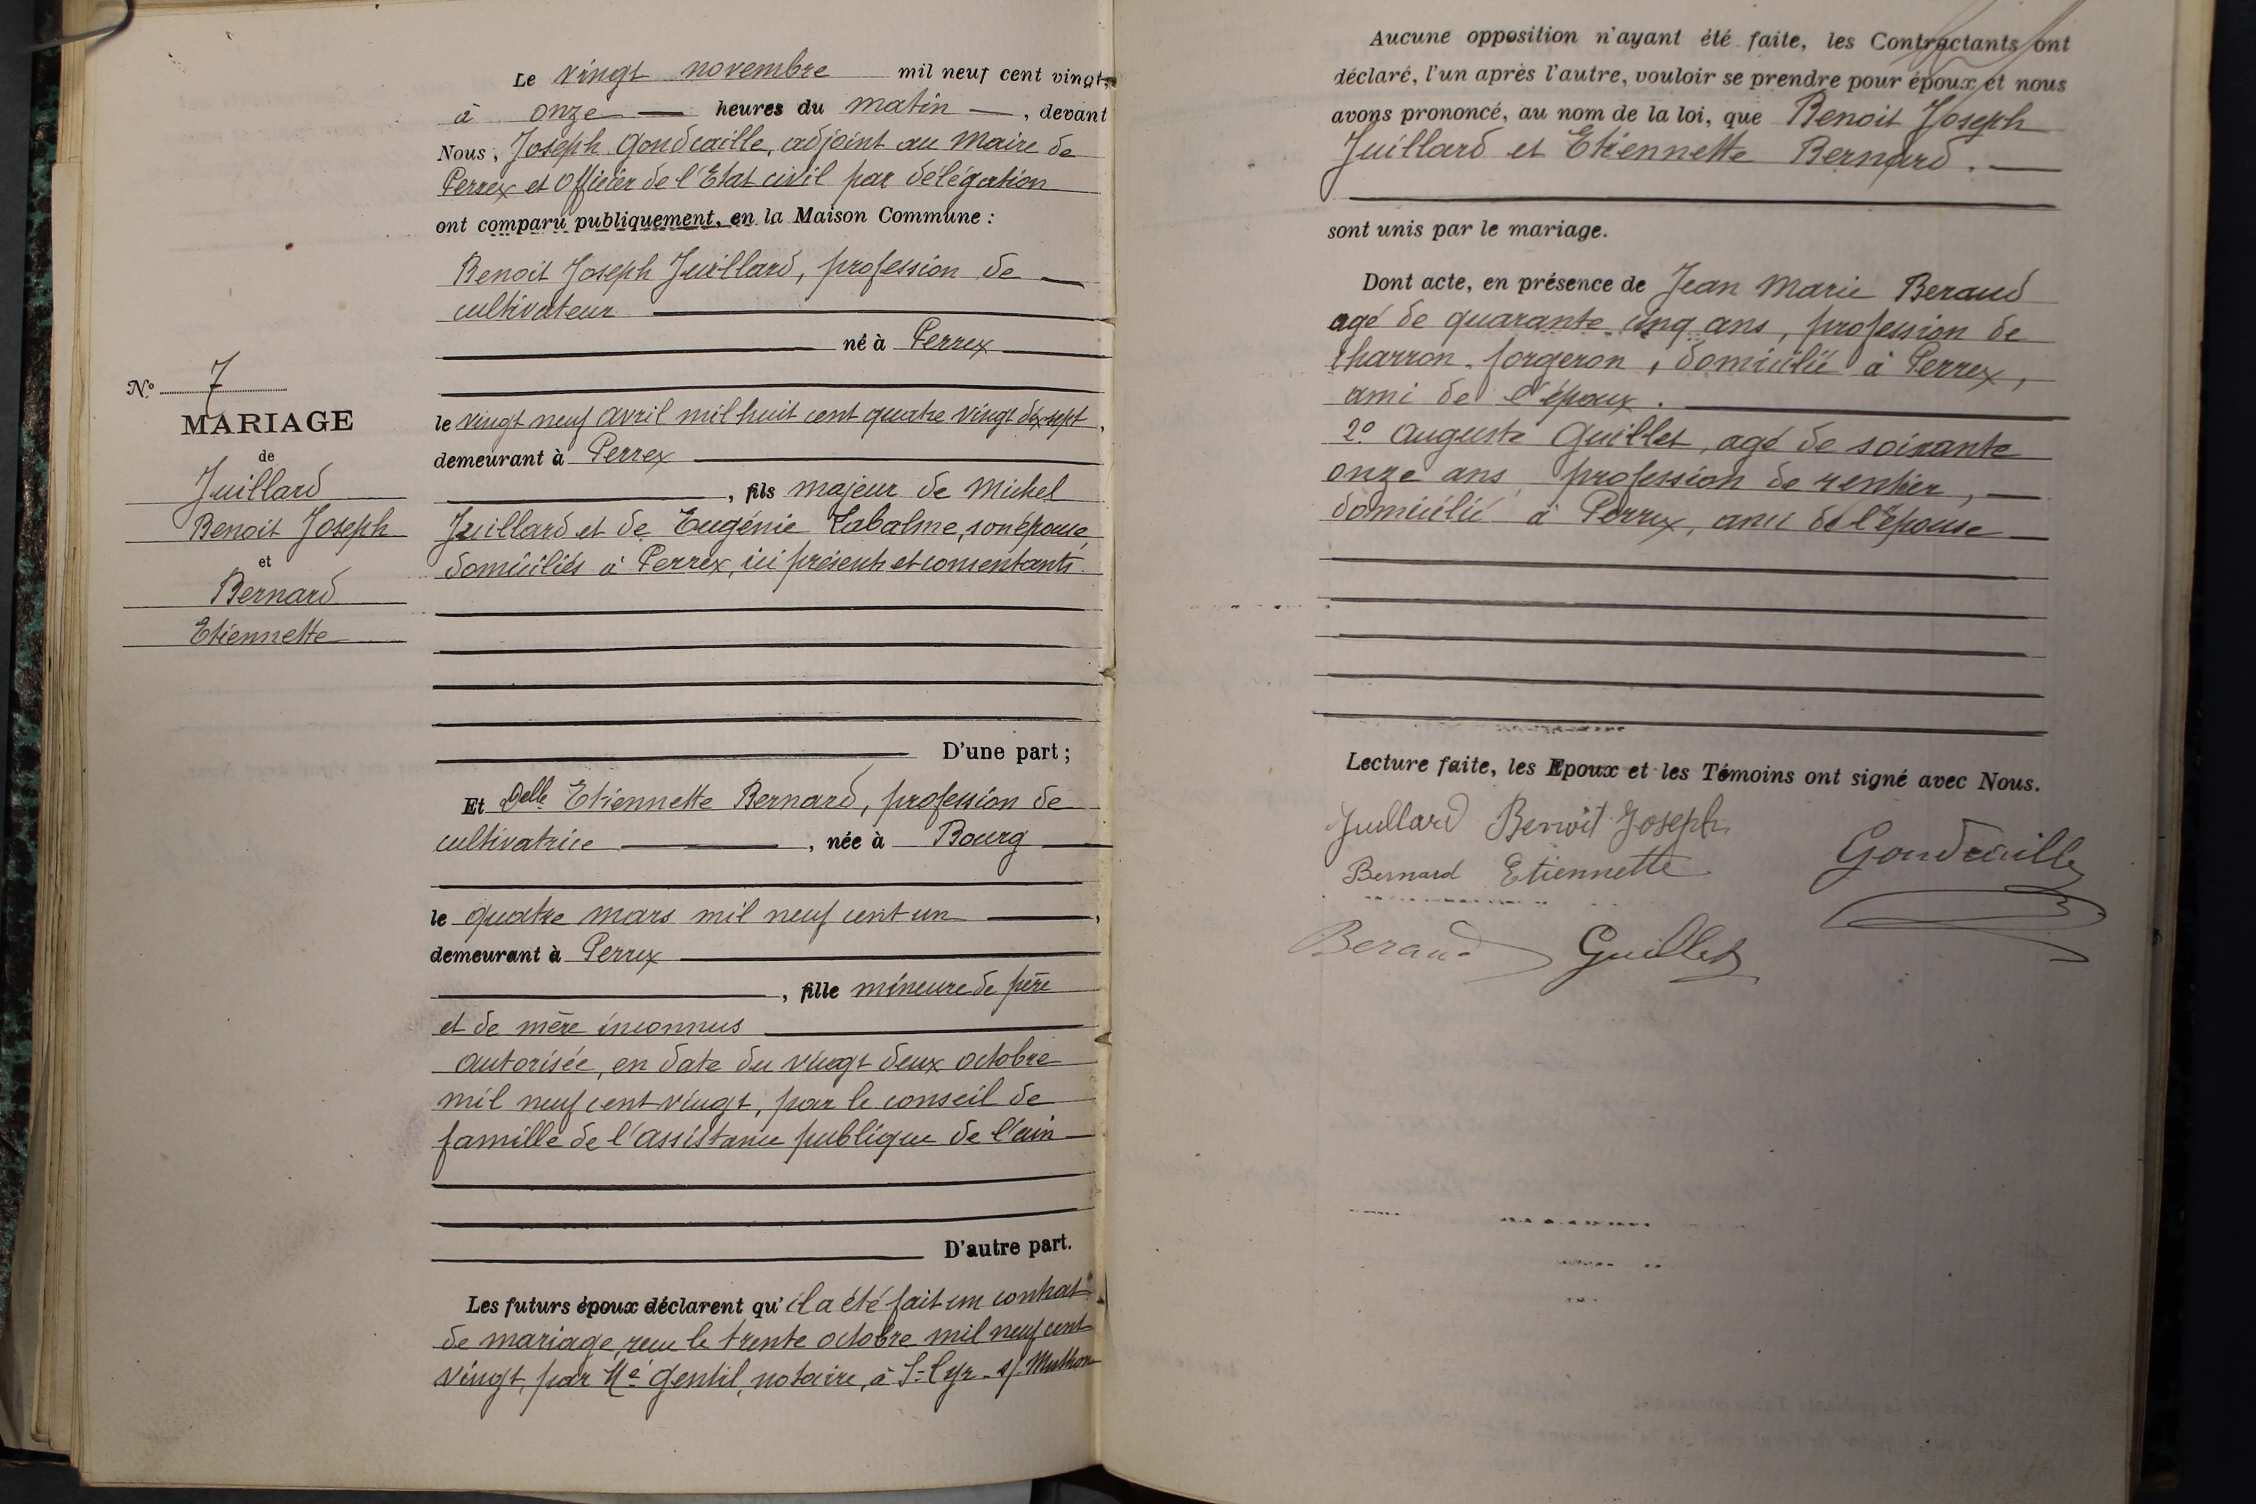 Le vingt novembre mil neuf cent vingt,
à onze heures du matin, devant
Nous, Joseph Goudcaille, adjoint au Maire de
Perrex et Officier de l'Etat civil par délégation
ont comparu publiquement, en la Maison Commune :
Benoit Joseph Juillard, profession de
cultivateur
né à Perrex
le vingt neuf avril mil huit cent quatre vingt dix sept,
demeurant à Perrex
, fils majeur de Michel
Juillard et de Eugénie Labalme, son épouse,
domiciliés à Perrex, ici présents et consentants.
D'une part ;
Et Delle Etiennette Bernard, profession de
cultivatrice, née à Bourg
le quatre mars mil neuf cent un,
demeurant à Perrex
, fille mineure de père
et de mère inconnus
autorisée, en date du vingt deux octobre
mil neuf cent vingt, par le conseil de
famille de l'assistance publique de l'ain
D'autre part.
Les futurs époux déclarent qu'il a été fait un contrat
de mariage, reçu le trente octobre mil neuf cent
vingt, par Me Gentil, notaire, à St-Cyr-s/Menthon
No 7
MARIAGE
de
Juillard
Benoit Joseph
et
Bernard
Etiennette
Aucune opposition n'ayant été faite, les Contractants ont
déclaré, l'un après l'autre, vouloir se prendre pour époux et nous
avons prononcé, au nom de la loi, que Benoit Joseph
Juillard et Etiennette Bernard.
sont unis par le mariage.
Dont acte, en présence de Jean Marie Beraud
agé de quarante cinq ans, profession de
Charron-forgeron, domicilié à Perrex,
ami de l'époux.
2o Auguste Guillet, agé de soixante
onze ans, profession de rentier,
domicilié à Perrex, ami de l'épouse
Lecture faite, les Epoux et les Témoins ont signé avec Nous.
Juillard Benoit Joseph
Bernard Etiennette
Goudcaille
Beraud Guillet